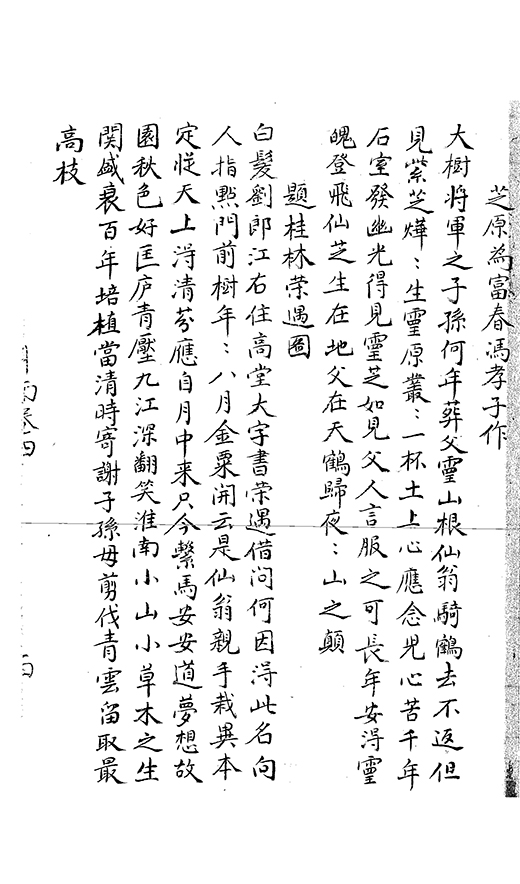 芝原為富春馮孝子作
大樹將軍之子孫何年葬父靈山根仙翁騎鶴去不返但
見紫芝燁：生靈原叢：一杯土上心應念児心苦千年
石室發幽光得見靈芝如見父人言服之可長年安得靈
魄登飛仙芝生在地父在天鶴歸夜：山之顛
題桂林荣遇圖
白髮劉郎江右住高堂大字書荣遇借问何因得此名向
人指點門前樹年：八月金粟開云是仙翁親手栽異本
定從天上得清芬應自月中来只今繫馬安安道夢想故
園秋色好匡庐青壓九江深翻笑淮南小山小草木之生
関盛衰百年培植當清時寄謝子孫毋剪伐青雲留取最
高枝